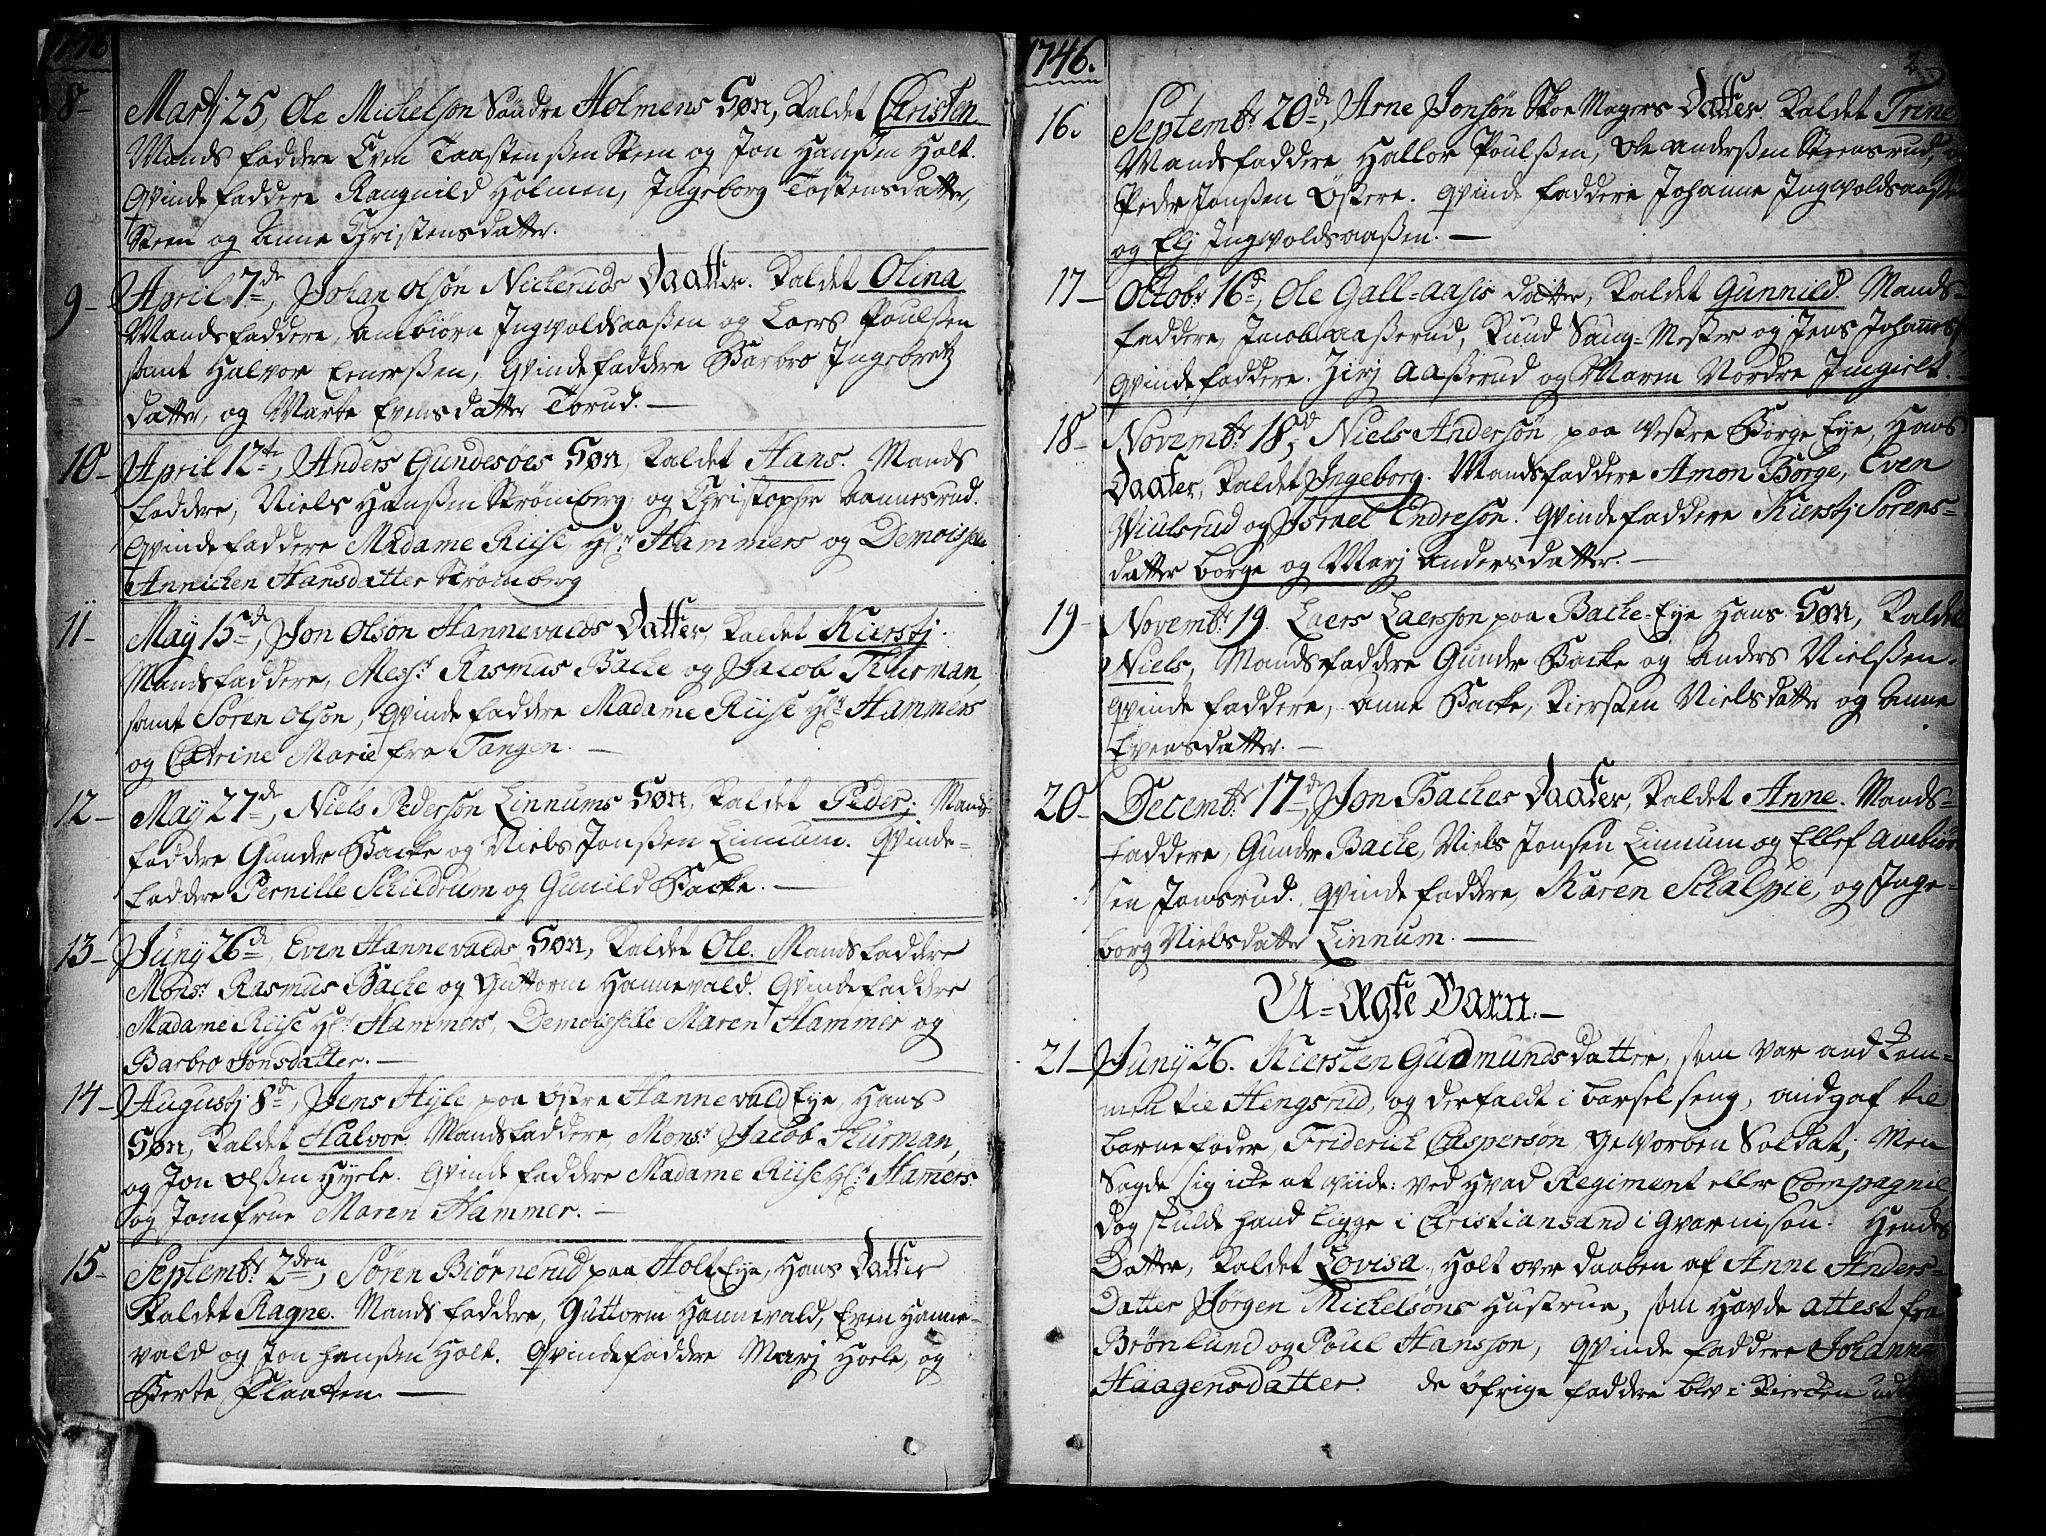 1746
8- Martj 25, Ole Michelson Söndre Holmens Søn, Kaldet Christen.
Mands faddere Even Taastenßen Skeen og Jon Hanßen Holt.
Qvinde faddere Rangnild Holmen, Ingeborg Tostensdatter,
Skeen og Anne Christensdatter.
9- April 7de, Johan Olsøn Nickeruds Daatter. Kaldet Olina
Mandsfaddere, Ambiörn Ingvoldsaaßen og Laers Poulßen
samt Halvor Enerßen, Qvindefaddere Barbro Ingebretz
datter, og Marte Evensdatter Torud.-
10- April 12te, Anders Gundesøes Søn, Kaldet Hans. Mands
faddere, Niels Hanßen Strömberg og Christopher
Qvindefaddere Madame Riise, Hr Hammers og Demoiselle
Annichen Hansdatter Strömberg
11- May 15de, Jon Olsøn Hannevalds Datter, Kaldet Kierstj.
Mandsfaddere, Mesr. Rasmus Backe og Jacob Thurman,
samt Sören Olsön, Qvindefaddere Madame Riise Hr Hammers
og Catrine Marie fra Tangen. -
12- May 27de, Niels Pedersön Linnums Søn, Kaldet Peder; Mands
faddere Gunder Backe og Niels Jonßen Linnum. Qvinde-
faddere Pernille Schildrum og Gunild Backe. -
13- Junij 26de, Even Hannevalds Søn, Kaldet Ole. Mandsfaddere
Monsr. Rasmus Backe og Guttorm Hannevald. Qvindefaddere
Madame Riise Hr Hammers, Demoisselle Maren Hammer og
Barbro Jonsdatter. -
14- Augustj 8de, Jens Hyle paa Østre Hannevald Eye, Hans
Søn, Kaldet Halvor. Mandsfaddere, Monsr. Jacob Thurman,
og Jon Olßen Hyele. Qvinde faddere Madame Riise Hr. Hamers
og Jomfrue Maren Hammer. -
15- Septembr. 2den, Sören Biörnerud paa Holt Eye, Hans Datter
Kaldet Ragne. Mands faddere, Guttorm Hannevald, Even Hanne-
vald og Jon Hanßen Holt. Qvindefaddere Marj Hoele, og
Berte Plaatten. -
1746. 2
16. Septembr. 20de, Arne Jonsön Skoe Magers Datter Kaldet Trine
Mandsfaddere Hallvor Poulßen, Ole Anderßen Skeensrud, og
Peder Jonßen Østere. Qvinde faddere Johanne Ingvoldsaaßen
og Elj Ingvoldsaaßen. -
17- Octobr. 16de, Ole Gall-aasis datter, Kaldet Gunnild. Mands-
faddere, Jacob Aaßerud, Knud Saug-Mester og Jens Johannes
Qvinde faddere. Zirj Aaßerud og Maren Nordre Jngielt.
18- Novembr. 18de, Niels Andersön paa Vestre Borge Eye, Hans
Daatter, Kaldet Ingeborg. Mandsfaddere Amon Borge, Even
Wiulsrud og Israel Endresön. Qvindefaddere Kierstj Sorens-
datter Borge og Marj Andersdatter. -
19- Novembr. 19. Laers Laersson paa Backe-Eye Hans Søn, Kaldet
Niels, Mandsfaddere Gunder Backe og Anders Nielßen.
Qvinde faddere, Anne Backe, Kiersten Nielsdatter og Anne
Evensdatter. -
20- Decembr. 17de, Jon Backes Daatter, Kaldet Anne. Mands-
faddere, Gunder Backe, Niels Jonsen Linnum og Ellef Ambiör
sen Jonsrud. Qvinde faddere, Karen Schalpie, og Inge-
borg Nielsdatter Linnum. -
U-Ægte Barn. -
21- Junij 26. Kiersten Gudmundsdatter, som var andkom-
men til Hengsrud, og der faldt i barsel seng, andgaf til
barnefader, Friderich Caspersön geworben Soldat; Men
Sagde sig icke at viide: ved Hvad Regiment eller Compagnie
dog skulde hand Ligge i Christiansand i Gvarnison. Hendes
Datter, Kaldet Lovisa, Holt over daaben af Anne Anders-
Datter Jörgen Michelsöns Hustrue, som Havde attest fra
Brönlund og Poul Hansson, Qvinde faddere Johanne
Haagensdatter. de öfrige faddere blev i Kiercken